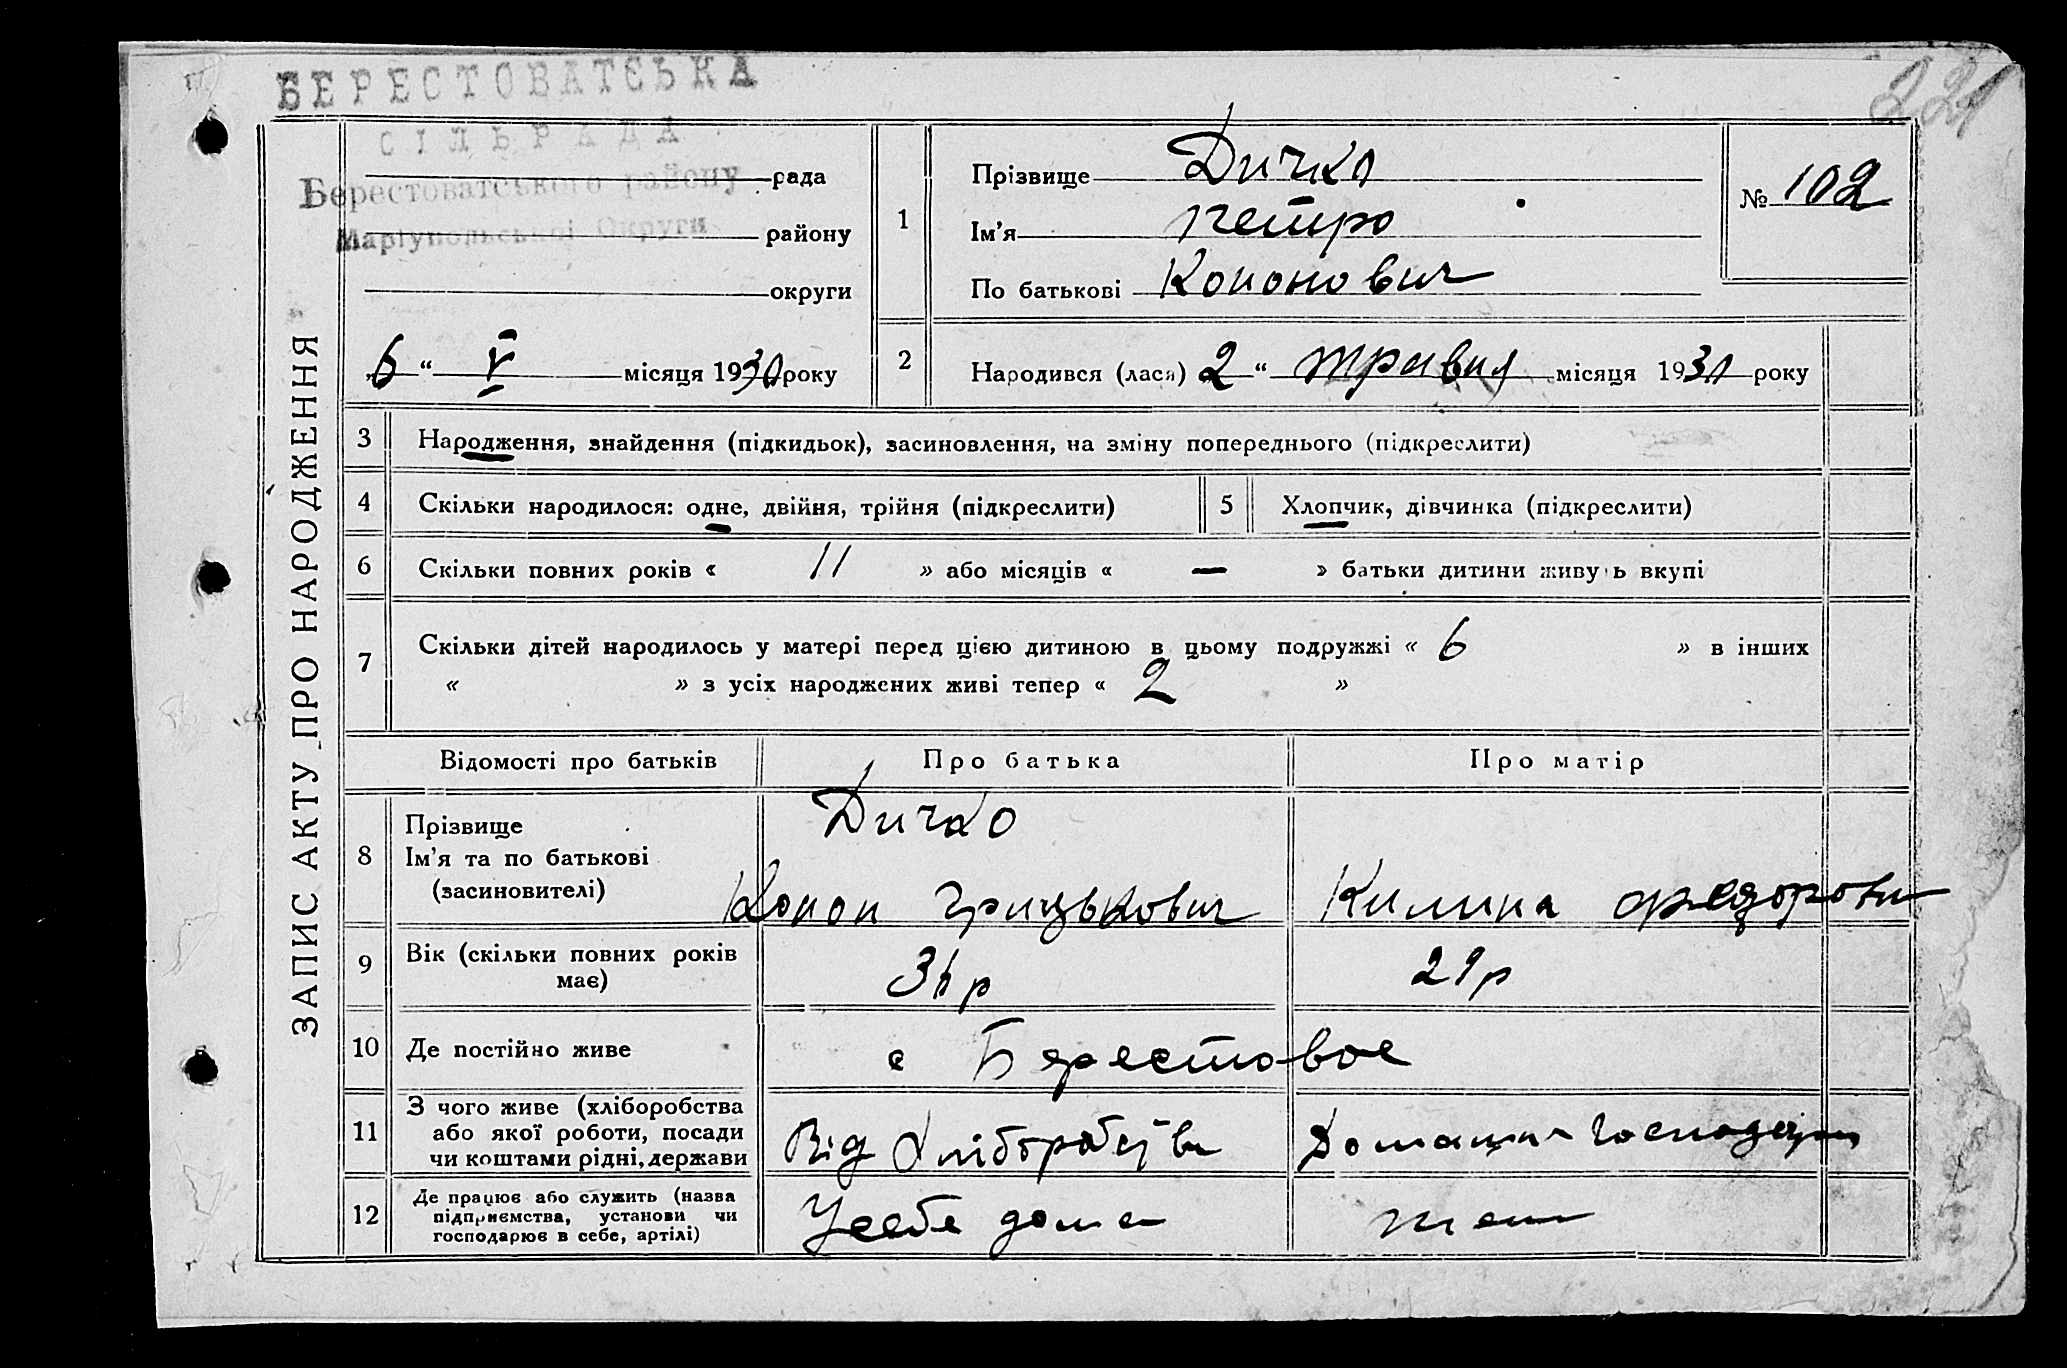 221
БЕРЕСТОВАТСЬКА
СІЛЬРАДА
рада
Берестоватського району
району
Маріупольської Округи
округи
„6“ V місяця 1930 року
ЗАПИС АКТУ ПРО НАРОДЖЕННЯ
1
Прізвище Дичко
Ім’я Петро
По батькові Кононович
№ 102
2 Народився (лася) 2 “ травня місяця 1930 року
3 Народження, знайдення (підкидьок), засиновлення, на зміну попереднього (підкреслити)
4 Скільки народилося: одне, двійня, трійня (підкреслити) 5 Хлопчик, дівчинка (підкреслити)
6 Скільки повних років « 11 » або місяців « — » батьки дитини живуть вкупі
7 Скільки дітей народилось у матері перед цією дитиною в цьому подружжі « 6 » в інших
« » з усіх народжених живі тепер « 2 »
Відомості про батьків Про батька Про матір
8 Прізвище
Ім’я та по батькові
(засновителі)
Дичко
Конон Грицькович Килина Федоровн
9 Вік (скільки повних років
має)
36 р 29 р
10 Де постійно живе с Берестовое
11 З чого живе (хліборобства
або якої роботи, посади
чи коштами рідні, держави
Від Хліборобства Домашня
12 Де працює або служить (назва
підприємства, установи чи
господарює в себе, артілі)
У себе дома теж